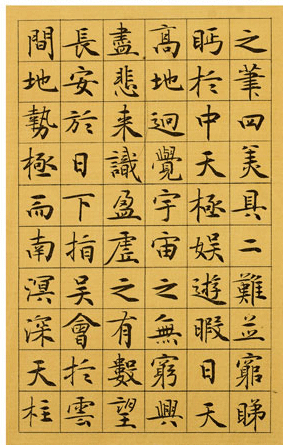 之筆四美具二難並窮睇
眄於中天極娛遊暇日天
高地迥覺宇宙之無窮興
盡悲来識盈虛之有數望
長安於日下指吴會於雲
間地勢極而南溟深天柱